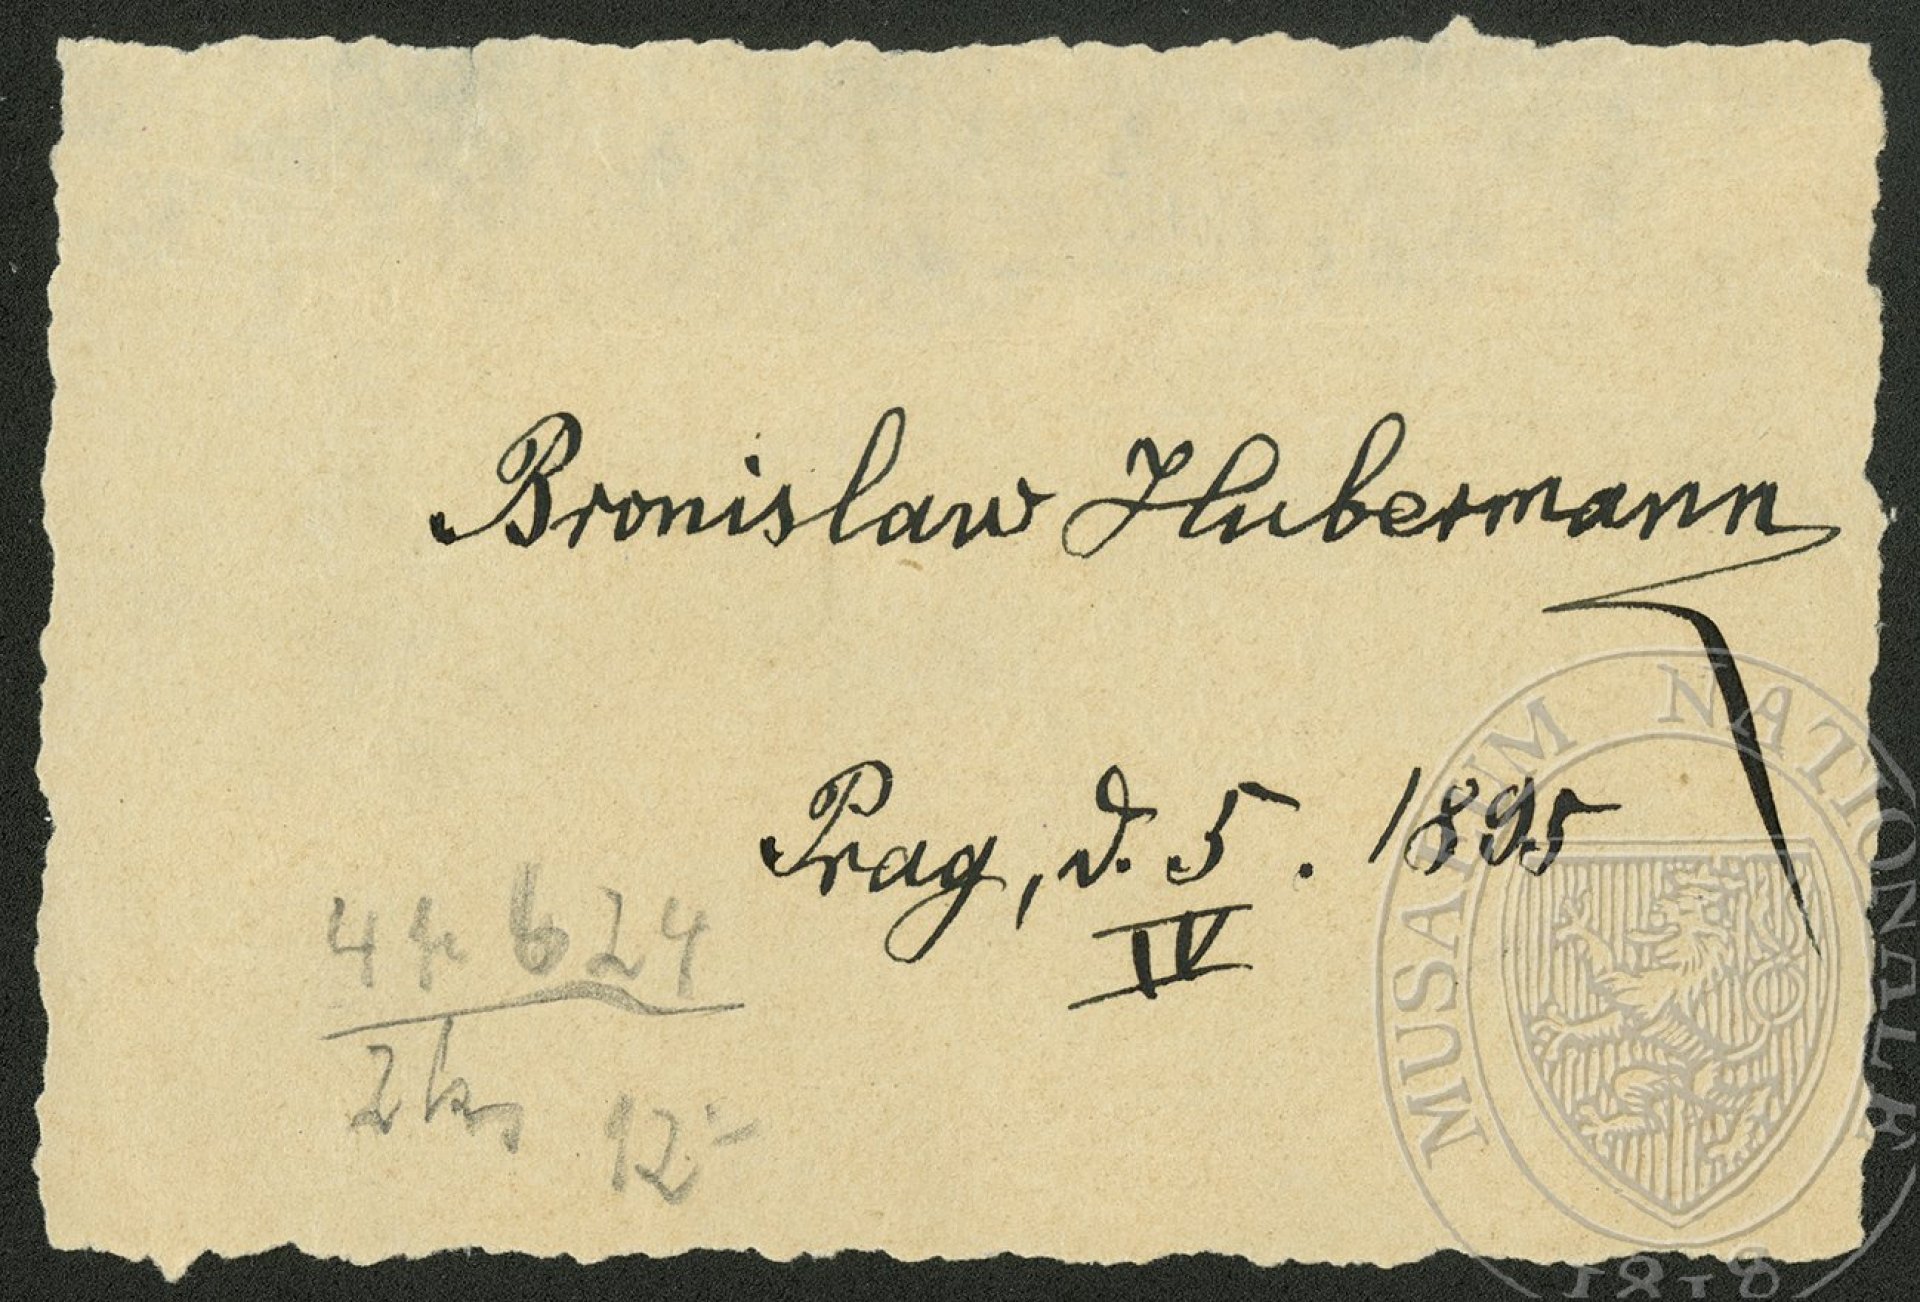 Bronislaw Hubermann
Prag, d. 5. 1895
IV
624
2 ks
12-
MUSAEUM NATIONALE
1818